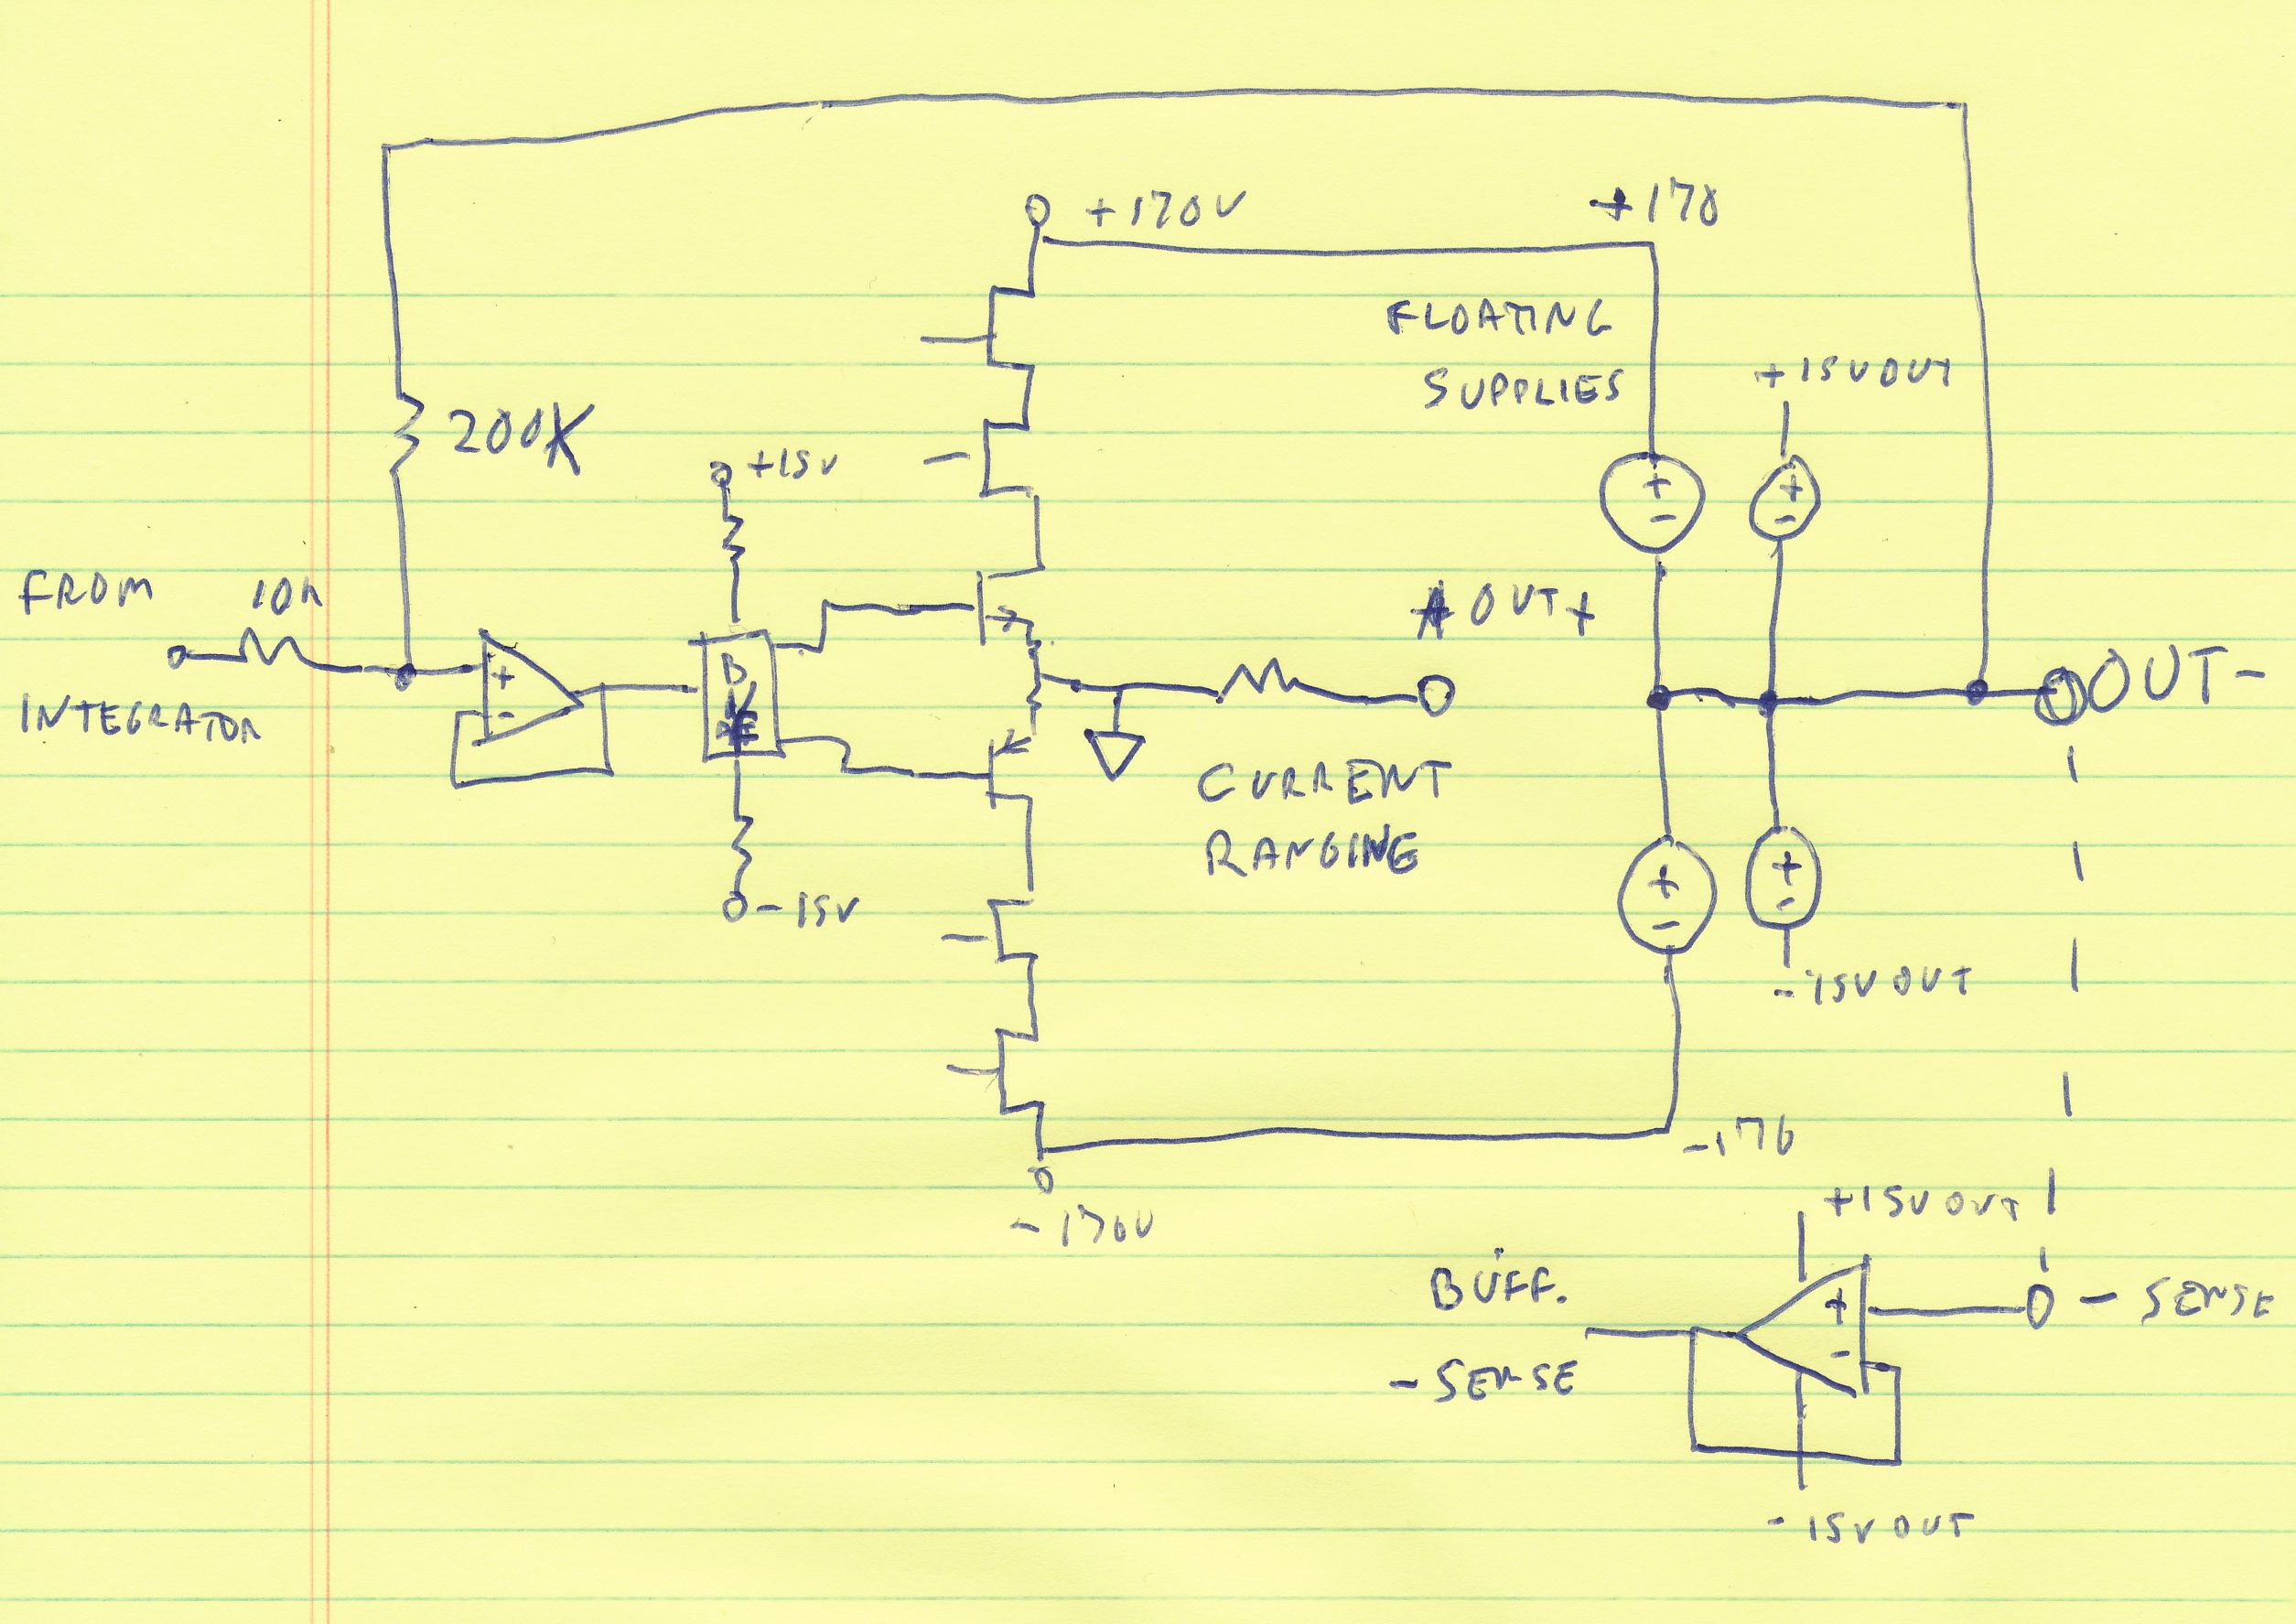 +170V
+170
FLOATING
SUPPLIES
+15VOUT
200K
+15V
FROM
10K
INTEGRATOR
+
-
B
OUT+
OUT-
CURRENT
RANGING
+
-
+
-
+
-
+
-
-15V
-15VOUT
-170
-170V
+15VOUT
BUFF.
-SENSE
+
-
- SENSE
-15VOUT